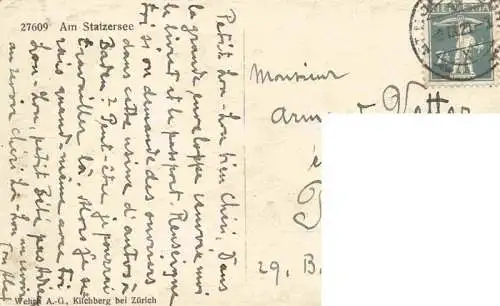 27609 Am Statzersee
Petit Lou-Lou bien chéri, Dans
la grande enveloppe envoie moi
le livret et le passport. Renseigne
toi si on demande des ouvriers
dans cette usine d'autos à
Baden? Peut-être je pourrai
travailler là. Alors je se
rais quand-même avec toi
Lou-Lou, petit Bébé pas
au revoir chéri Lou-Lou
ton
Wehrli A.-G., Kilchberg bei Zürich
Monsieur
Vetter
29. B